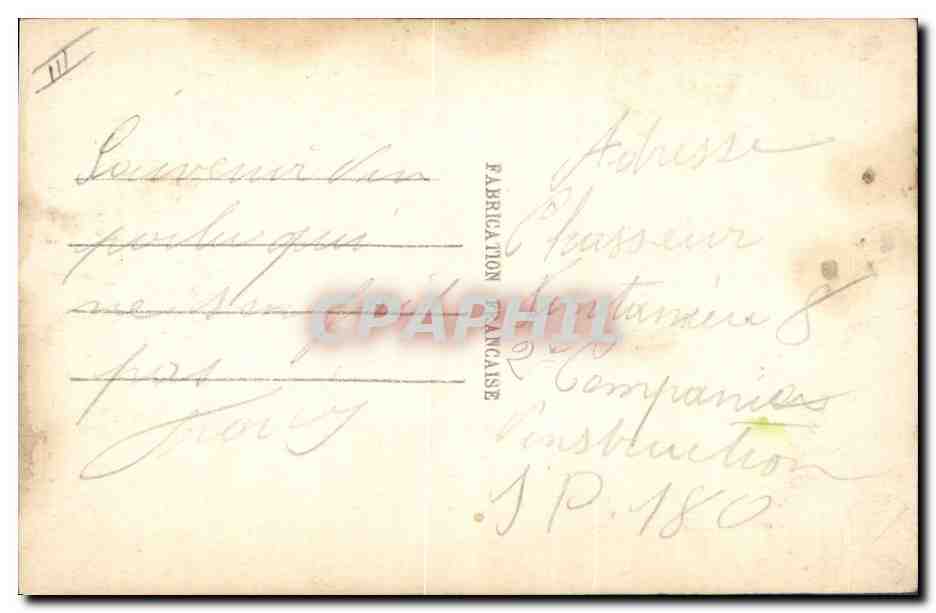 III
Souvenir d'un
poilu qui
pas
FABRICATION FRANCAISE
CPAPHIL
Adresse
Chasseur
8
2e Companies
d'instruction
S P. 180